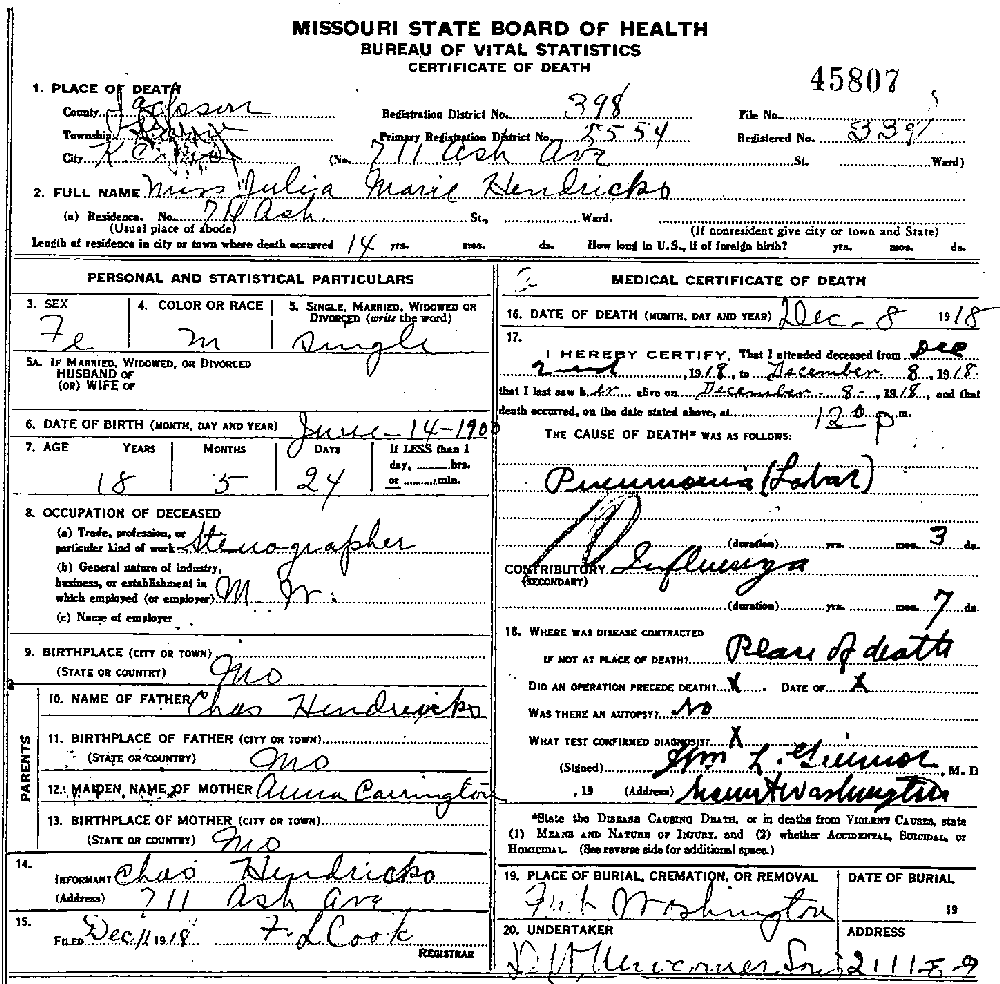 MISSOURI STATE BOARD OF HEALTH
BUREAU OF VITAL STATISTICS
CERTIFICATE OF DEATH
45807
1. PLACE OF DEATH
County Jackson Registration District No. 398 File No.
Township Primary Registration District No. 5554 Registered No. 339
City (No. 711 Ash Ave St. Ward)
2. FULL NAME Miss Julia Marie Hendricks
(a) Residence. No. 711 Ash St., Ward.
(Usual place of abode) (If nonresident give city or town and State)
Length of residence in city or town where death occurred 14 yrs. mos. ds. How long in U.S., if of foreign birth? yrs. mos. ds.
PERSONAL AND STATISTICAL PARTICULARS
3. SEX 4. COLOR OR RACE 5. SINGLE, MARRIED, WIDOWED OR
DIVORCED (write the word)
Fe single
5A. IF MARRIED, WIDOWED, OR DIVORCED
HUSBAND OF
(OR) WIFE OF
6. DATE OF BIRTH (MONTH, DAY AND YEAR) June-14-1900
7. AGE YEARS MONTHS DAYS If LESS than 1
day, hrs.
or min.
18 5 24
8. OCCUPATION OF DECEASED
(a) Trade, profession, or
particular kind of work Stenographer
(b) General nature of industry,
business, or establishment in
which employed (or employer) M. W.
(c) Name of employer
9. BIRTHPLACE (CITY OR TOWN)
(STATE OR COUNTRY) Mo
PARENTS
10. NAME OF FATHER Chas Hendricks
11. BIRTHPLACE OF FATHER (CITY OR TOWN)
(STATE OR COUNTRY) Mo
12. MAIDEN NAME OF MOTHER Anna Carrington
13. BIRTHPLACE OF MOTHER (CITY OR TOWN)
(STATE OR COUNTRY) Mo
14.
INFORMANT Chas Hendricks
(Address) 711 Ash Ave
15.
FILED Dec 11 1918 F L Cook
REGISTRAR
MEDICAL CERTIFICATE OF DEATH
16. DATE OF DEATH (MONTH, DAY AND YEAR) Dec-8 1918
17.
I HEREBY CERTIFY, That I attended deceased from Dec
2nd, 1918, to December 8, 1918
that I last saw her alive on December 8, 1918, and that
death occurred, on the date stated above, at 12 p m.
THE CAUSE OF DEATH* WAS AS FOLLOWS:
Pneumonia (Lobar)
(duration) yrs. mos. 3 ds.
CONTRIBUTORY Influenza
(SECONDARY)
(duration) yrs. mos. 7 ds.
18. WHERE WAS DISEASE CONTRACTED
IF NOT AT PLACE OF DEATH? Place of death
DID AN OPERATION PRECEDE DEATH? X DATE OF X
WAS THERE AN AUTOPSY? No
WHAT TEST CONFIRMED DIAGNOSIS? X
(Signed) Wm L. , M. D
, 19 (Address) Mount Washington
*State the DISEASE CAUSING DEATH, or in deaths from VIOLENT CAUSES, state
(1) MEANS AND NATURE OF INJURY, and (2) whether ACCIDENTAL, SUICIDAL, or
HOMICIDAL. (See reverse side for additional space.)
19. PLACE OF BURIAL, CREMATION, OR REMOVAL DATE OF BURIAL
Washington 19
20. UNDERTAKER ADDRESS
D W Newcomer Sons 2111 E 9